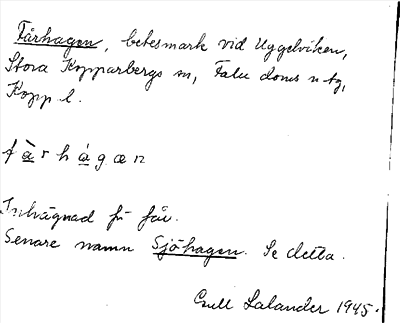 Fårhagen, betesmark vid Uggelviken,
Stora Kopparbergs sn, Falu doms u tg,
Kopp l.
f à r h á g æ n
Inhägnad för får.
Senare namn Sjöhagen. Se detta.
Lalander 1945.